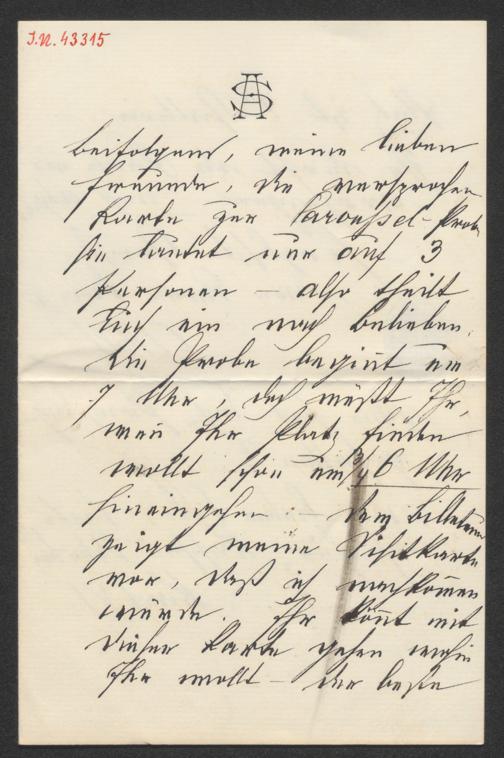 I.N. 43315
AS
beifolgend, meine lieben
Freunde, die versprochene
Karte zur Caroussel-Probe
sie lautet nur auf 3
Personen – also theilt
Euch ein nach Belieben.
Die Probe beginnt um
7 Uhr, doch müßt Ihr,
wenn Ihr Platz finden
wollt schon um 3/4 6 Uhr
hineingehen: – dem Billeteur
zeigt meine Visitkarte
vor, daß ich nachkommen
würde. Ihr könnt mit
dieser Karte gehen wohin
Ihr wollt – der beste